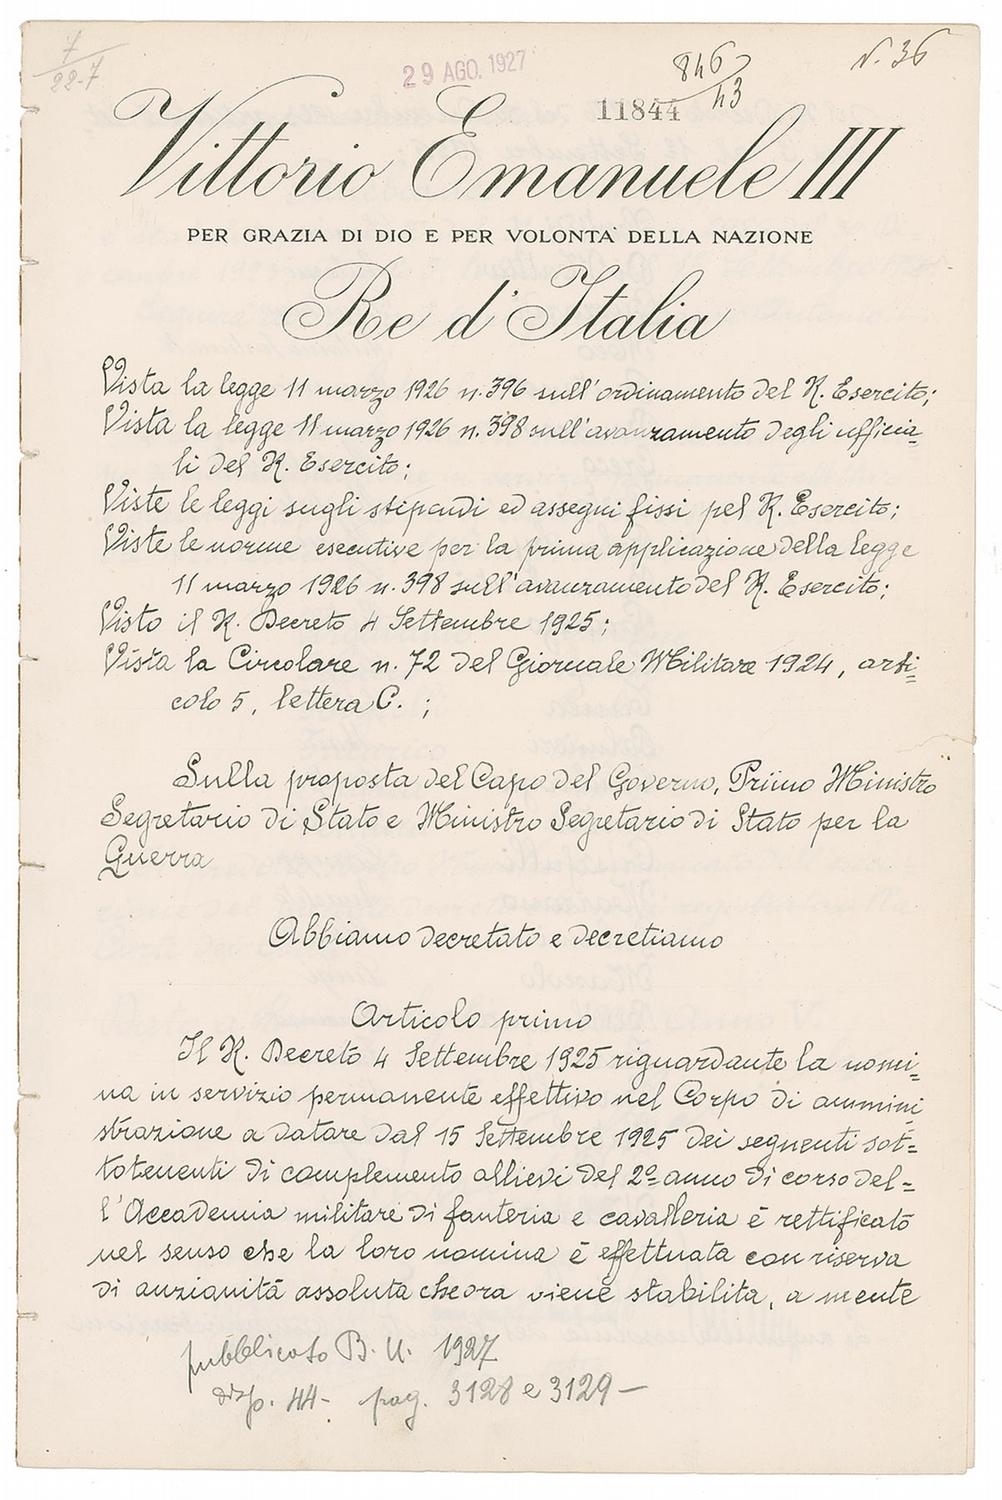 7
22-7
29 AGO. 1927
846
43
N. 36
11844
Vittorio Emanuele III
PER GRAZIA DI DIO E PER VOLONTA' DELLA NAZIONE
Re d'Italia
Vista la legge 11 marzo 1926 n. 396 sull'ordinamento del R. Esercito;
Vista la legge 11 marzo 1926 n. 398 sull'avanzamento degli ufficia=
li del R. Esercito;
Viste le leggi sugli stipendi ed assegni fissi pel R. Esercito;
Viste le norme esecutive per la prima applicazione della legge
11 marzo 1926 n. 398 sull'avanzamento del R. Esercito;
Visto il R. Decreto 4 Settembre 1925;
Vista la Circolare n. 72 del Giornale Militare 1924, arti=
colo 5, lettera C. ;
Sulla proposta del Capo del Governo, Primo Ministro
Segretario di Stato e Ministro Segretario di Stato per la
Guerra
Abbiamo decretato e decretiamo
Articolo primo
Il R. Decreto 4 Settembre 1925 riguardante la nomi=
na in servizio permanente effettivo nel Corpo di ammini=
strazione a datare dal 15 Settembre 1925 dei seguenti sot=
totenenti di complemento allievi del 2º anno di corso del=
l'Accademia militare di fanteria e cavalleria è rettificato
nel senso che la loro nomina è effettuata con riserva
di anzianità assoluta che ora viene stabilita, a mente
pubblicato B. U. 1927
disp. 44- pag. 3128 e 3129 —